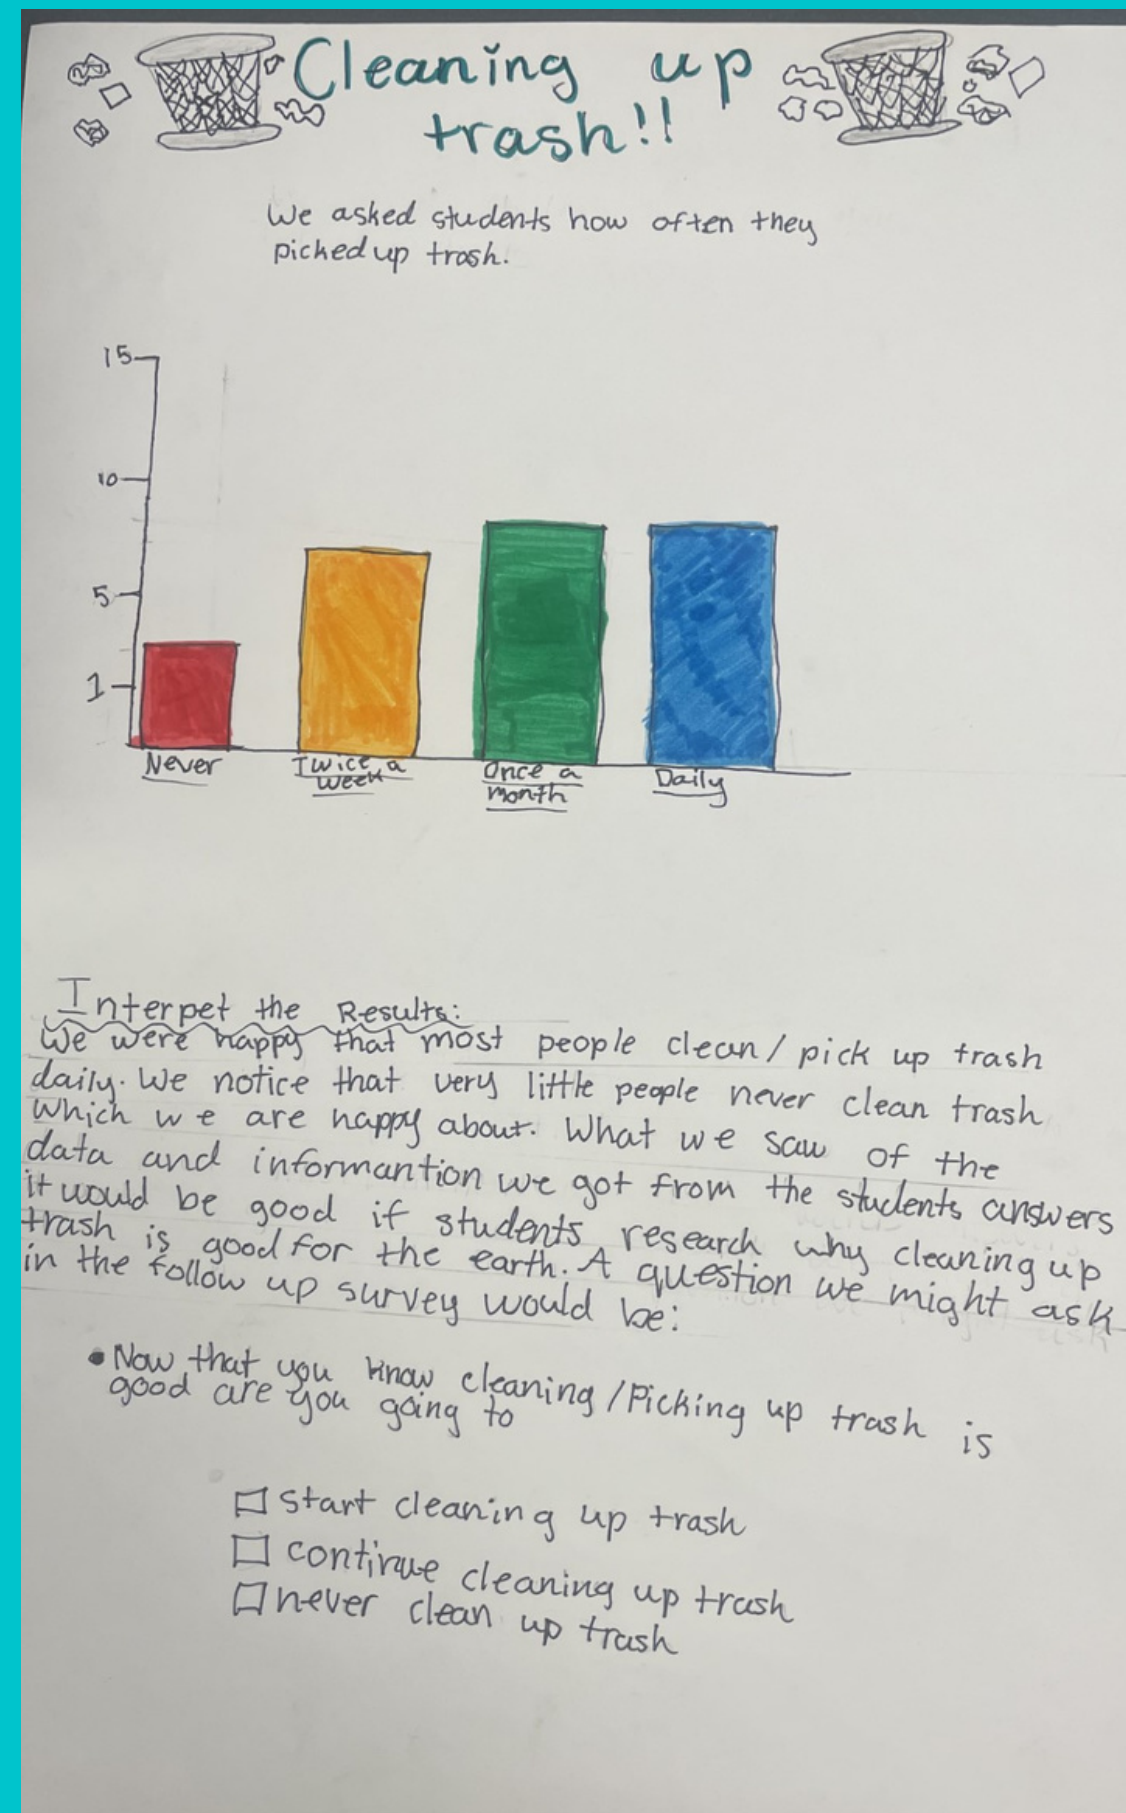 Cleaning up
trash!!
We asked students how often they
picked up trash.
15
10
5
1
Never
Twice a
week
Once a
month
Daily
Interpet the Results:
We were happy that most people clean / pick up trash
daily. We notice that very little people never clean trash
which we are happy about. What we saw of the
data and informantion we got from the students answers
it would be good if students research why cleaning up
trash is good for the earth. A question we might ask
in the follow up survey would be:
• Now that you know cleaning / Picking up trash is
good are you going to
start cleaning up trash
continue cleaning up trash
never clean up trash